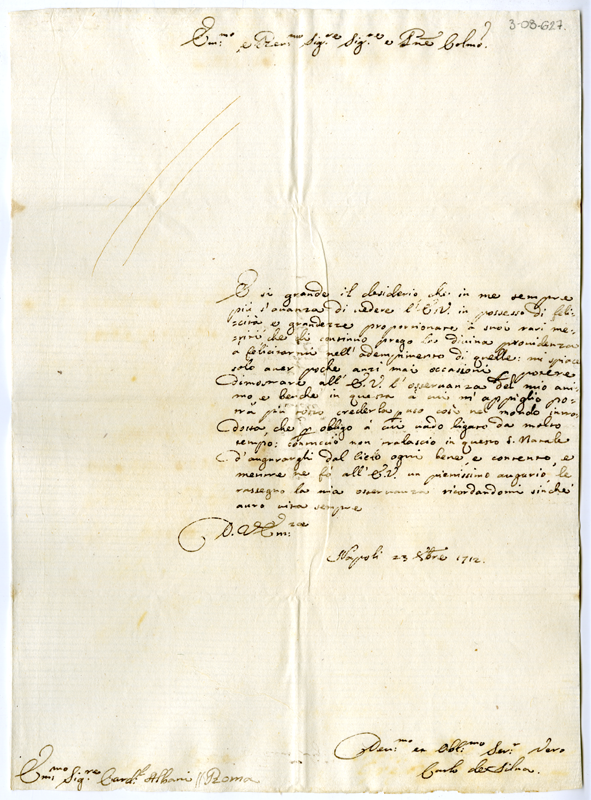 3-03-627.
Em.mo e Rev.mo Sig.re Sig.re e Pne Colmo.
È si grande il desiderio, che in me sempre
più s'avanza di vedere l'E.V. in possesso di feli-
cità e grandezze proporzionate à suoi rari me-
riti che di continuo prego la divina providenza
a felicitarmi nell'adempimento di quelle: mi spiace
solo aver poche anzi mai occasioni p potere
dimostrare all'E.V. l'osservanza del mio ani-
mo, e benche in questa à cui mi appiglio po-
trà più tosto crederla uso così nel mondo intro-
dotto, che p obligo à cui vado ligato da molto
tempo: contuttociò non tralascio in questo S. Natale
d'augurargli dal Cielo ogni bene, e contento, e
mentre ne fò all'E.V. un pienissimo augurio, le
rassegno la mia osservanza ricordandomi sinche
avrò vita sempre
D. V. Em.za
Napoli 23 Xbre 1712.
Dev.mo et Obl.mo Ser.e Vero
Carlo de Silva.
Em.mo Sig.re Card.l Albani // Roma